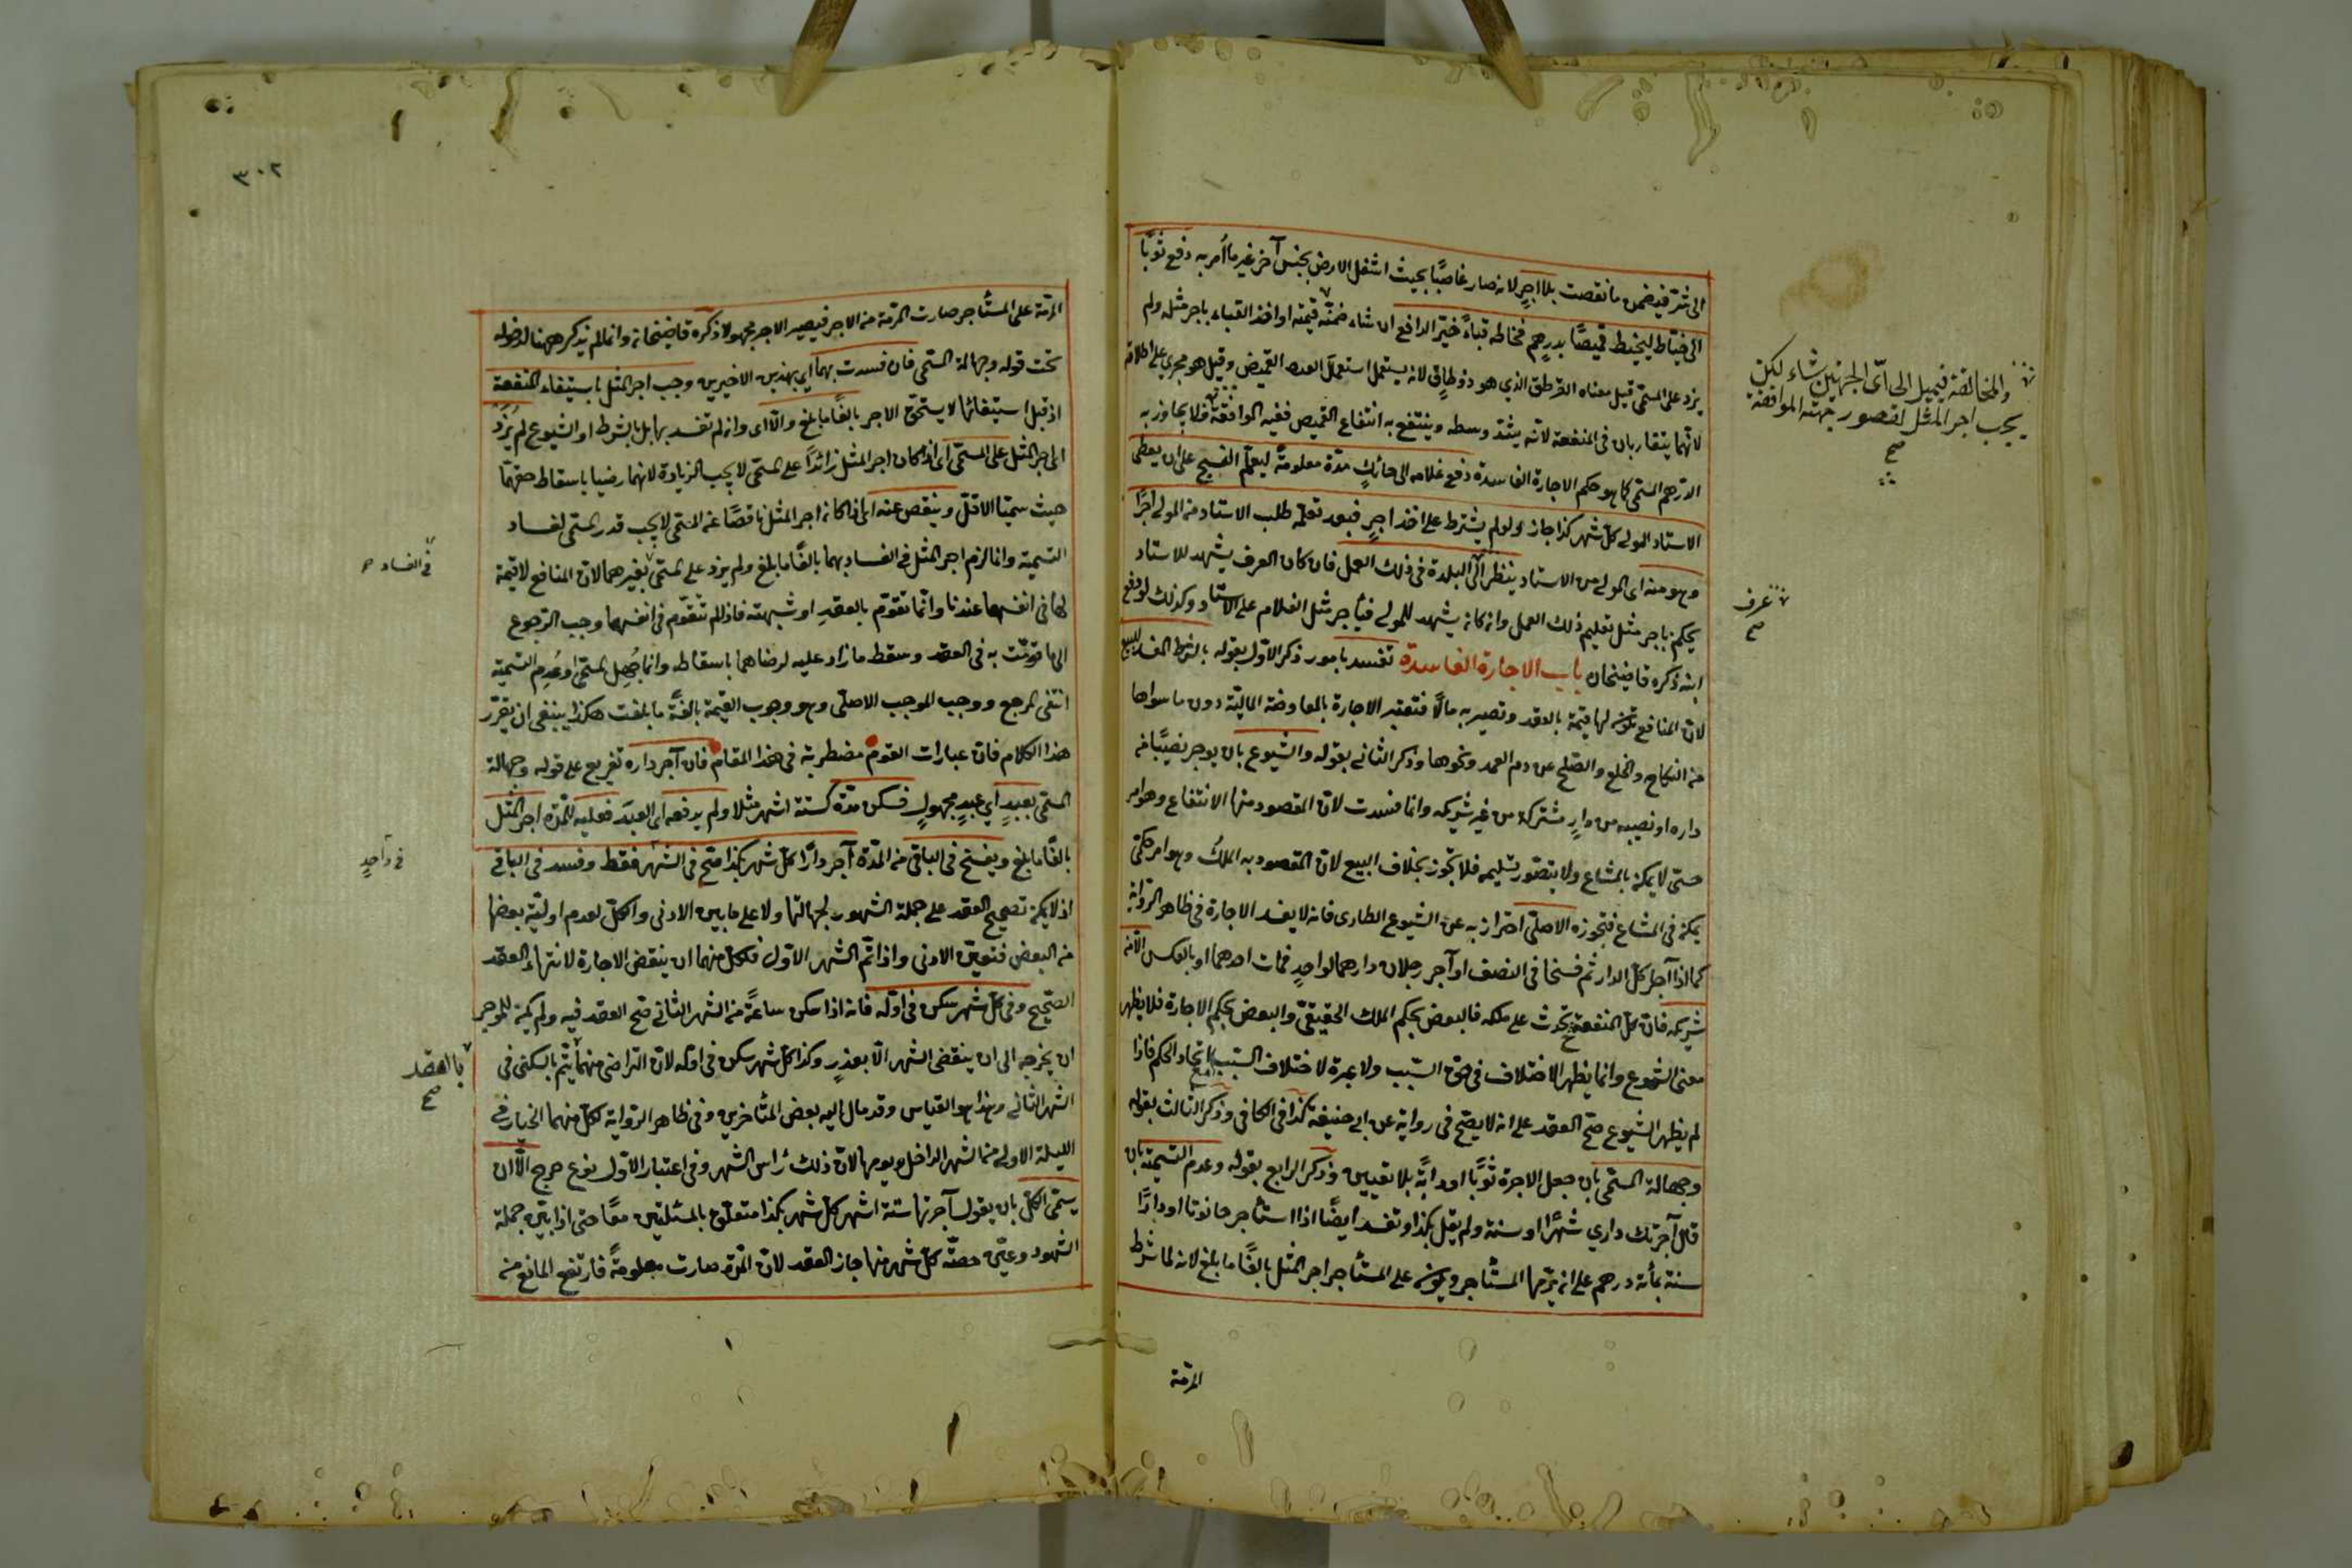 الى شرّ فيضمن ما نقصت بلا اجرٍ لانه صار غاصبًا بحيث اشغل الارض بجنس آخر غير ما أمر به دفع ثوبًا
الى خيّاط ليخيط قميصًا بدرهم فخاطه قباءً خيّر الدافع ان شاء ضمنّه قيمته او اخذ القباء باجر مثله ولم
يزد على المسمّى قيل معناه القرطق الذي هو ذو طاقٍ لانه يستعمل استعمال القميص وقيل هو مجرى على اطلاقه
لانّهما يتقاربان فى المنفعة لانّه يشدّ وسطه وينتفع به انتفاع القميص ففيه الموافقة فلا يجاوز به
الدّرهم المسمّى كما هو حكم الاجارة الفاسدة دفع غلامه الى حائكٍ مدّة معلومةً ليعلّم النسج على ان يعطى
الاستاد المولى كلّ شهر كذا جاز ولو لم يشترط على اخذ اجرٍ فبعد تعلّمه طلب الاستاد من المولى اجرًا
وهو منه اى المولى من الاستاد ينظر الى البلدة فى ذلك العمل فان كان العرف يشهد للاستاد
يحكم باجر مثل تعليم ذلك العمل وان كان يشهد للمولى فباجر مثل الغلام على الاستاد وكذلك لو دفع
ابنه ذكره قاضيخان باب الاجارة الفاسدة تفسد بامور ذكر الاوّل بقوله بالشرط المفسد للبيع
لانّ المنافع تكون لها قيمة بالعقد وتصير به مالًا فتعتبر الاجارة بالمعاوضة الماليّة دون ما سواها
من النكاح والخلع والصّلح عن دم العمد ونحوها وذكر الثانى بقوله والشيوع بان يوجر نصيبًا من
داره او نصيبه من دارٍ مشتركة من غير شريكه وانما فسدت لانّ المقصود منها الانتفاع وهو امر
حسّى لا يمكن بالمشاع ولا يتصوّر تسليمه فلا يجوز بخلاف البيع لانّ المقصود به الملك وهو امر حكمّى
يمكن فى المشاع فيجوز الاصلّى احتراز به عن الشيوع الطارى فانه لا يفسد الاجارة فى ظاهر الرّواية
كما اذا آجر كلّ الدار ثم فسخا فى النصف او آجر رجلان دارهما لواحدٍ فمات احدهما او بالعكس الّا من
شريكه فانّ كلّ المنفعة تحدث على ملكه فالبعض بحكم الملك الحقيقّى والبعض بحكم الاجارة فلا يظهر
معنى الشيوع وانما يظهر الاختلاف فى حقّ السّبب ولا عبرة لاختلاف السّبب اتحاد الحكم فاذا
لم يظهر الشيوع صحّ العقد على انه لا يصّح فى رواية عن ابى حنيفة كذا فى الكافى وذكر الثالث بقوله
وجهالة المسمّى بان جعل الاجرة ثوبًا او دابّةً بلا تعيين وذكر الرابع بقوله وعدم التسمية بان
قال آجرتك داري شهرًا او سنة ولم يقل بكذا وتفسد ايضًا اذا استأجر حانوتا او دارًا
سنة بمأته درهم على ان يرّمها المستأجر ويكون على المستأجر اجر المثل بالغًا ما بلغ لانه لما شرط
المرمّة
والمخالفة فيميل الى اىّ الجهتين شاء لكن
يجب اجر المثل لقصور جهته الموافقة
صح
عرف
صح
٣٠٢
المرمّة على المستأجر صارت المرمة من الاجر فيصير الاجر مجهولا ذكره قاضيخان وانما لم يذكر ههنا لدخوله
تحت قوله وجهالة المسمّى فان فسدت بهما اي بهذين الاخيرين وجب اجر المثل باستيفاء المنفعة
اذ قبل استيفائها لا يستحقّ الاجر بالغًا ما بلغ والّا اى وان لم تفسد بهما بل بالشرط او الشيوع لم يُزَد
اى اجر المثل على المسمّى اى اذا كان اجر المثل زائدًا على المسمّى لا يجب الزيادة لانهما رضيا باسقاط حقهما
حيث سميّا الاقلّ وينقص عنه اى اذا كان اجر المثل ناقصًا عن المسمّى لا يجب قدر المسمى لفساد
التسمية وانما لزم اجر المثل فى الفساد بهما بالغًا ما بلغ ولم يزد على المسمّى بغيرهما لانّ المنافع لا قيمة
لها فى انفسها عندنا وانّما تقوّم بالعقدِ او شبهته فاذا لم تتقوّم فى انفسها وجب الرّجوع
الى ما قوّمت به فى العقد وسقط ما زاد عليه لرضاهما باسقاطه وانما جُهِل المسمّى او عُدِم التسمية
انتفى المرجع ووجب الموجب الاصلّى وهو وجوب القيمة بالغةً ما بلغت هكذا ينبغى ان يقرّر
هذا الكلام فانّ عبارات القوم مضطربة فى هذا المقام فان آجر داره تفريع على قوله وجهالة
المسمّى بعبدٍ اي عبدٍ مجهولٍ فسكن مدّة كستة اشهر مثلا ولم يدفعه اى العبدَ فعليه للمدّة اجر المثل
بالغًا ما بلغ ويفسخ فى الباقى من المدّة آجر دارًا كلّ شهر بكذا صّح فى الشهر فقط وفسد فى الباقى
اذ لا يمكن تصحيح العقد على جملة الشهور لجهالتها ولا على ما بين الادنى والكلّ لعدم اولوية بعضها
من البعض فتعيّن الادنى واذا تمّ الشهر الاوّل فلكلّ منهما ان ينقض الاجارة لانتهاء العقد
الصّحيح وفى كلّ شهر سكن فى اوّله فانه اذا سكن ساعةً من الشهر الثانى صّح العقد فيه ولم يكن للموجر
ان يخرجه الى ان ينقضى الشهر الّا بعذرٍ وكذا كلّ شهر سكن فى اوّله لانّ التراضى منهما يتّم بالسكنى فى
الشهر الثانى وهذا هو القياس وقد مال اليه بعض المتأخرين وفى ظاهر الرّواية لكلّ منهما الخيار فى
الليلة الاولى من الشهر الداخل ويومها لانّ ذلك رأس الشهر وفى اعتبار الاوّل نوع حرج الّا ان
يسمّى الكلّ بان يقول آجرتها ستة اشهر كلّ شهر بكذا متعلّق بالمسئلتين معًا حتى اذا بيّن جملة
الشهور وعيّن حصّة كلّ شهر منها جاز العقد لانّ المدّة صارت معلومةً فارتفع المانع من
فى الفساد
فى واحدٍ
بالعقد
صح